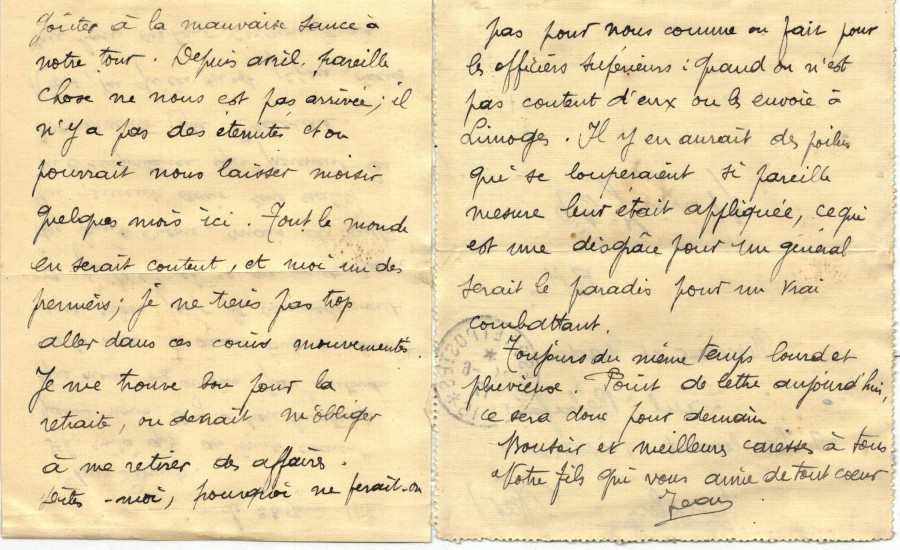 goûter à la mauvaise sauce à
notre tour. Depuis avril, pareille
chose ne nous est pas arrivée ; il
n'y a pas des éternités, et on
pourrait nous laisser moisir
quelques mois ici. Tout le monde
en serait content, et moi un des
premiers ; je ne tiens pas trop
aller dans ces coins mouvementés.
Je me trouve bon pour la
retraite, on devrait m'obliger
à me retirer des affaires.
Dites-moi, pourquoi ne ferait-on
pas pour nous comme on fait pour
les officiers supérieurs : Quand on n'est
pas content d'eux on les envoie à
Limoges. Il y en aurait des poilus
qui se louperaient si pareille
mesure leur était appliquée, ce qui
est une disgrâce pour un général
serait le paradis pour un vrai
combattant.
Toujours du même temps lourd et
pluvieux. Point de lettre aujourd'hui,
ce sera donc pour demain
Bonsoir et meilleurs caresses à tous
Votre fils qui vous aime de tout coeur
Jean